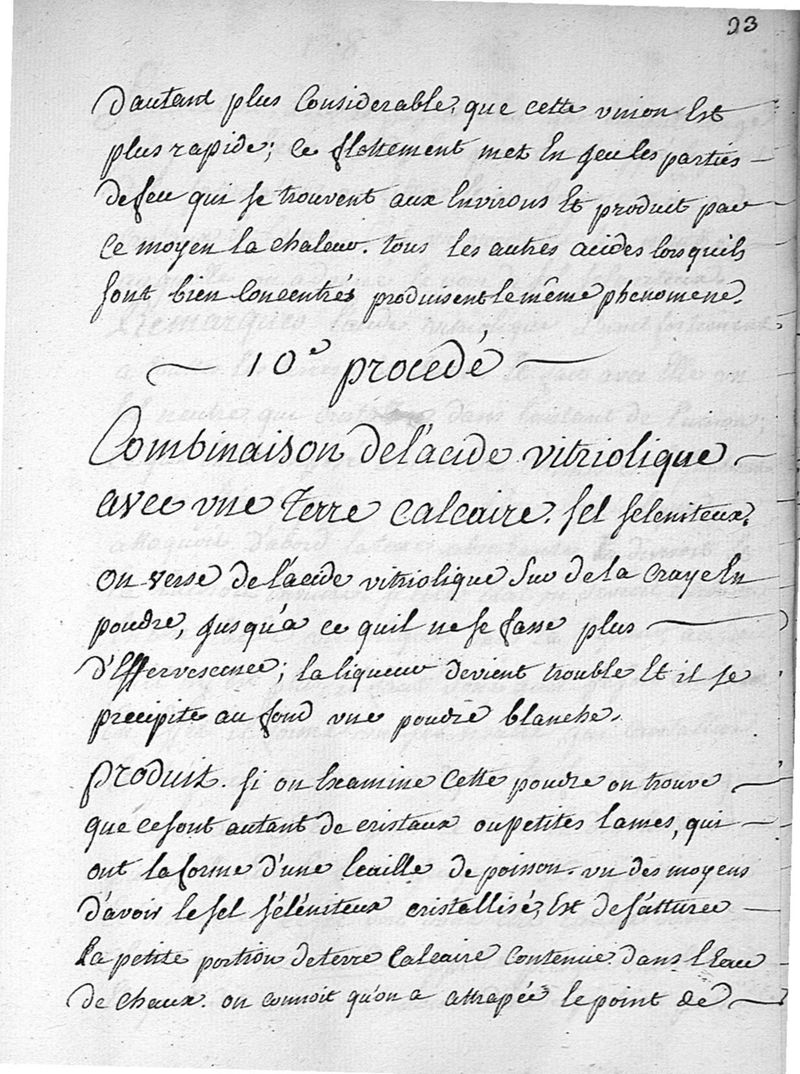 23
d'autant plus Considerable, que cette vnion Est
plus rapide; ce flottement met En jeu les parties
de feu qui se trouvent aux Environs Et produit par
ce moyen la chaleur. tous les autres acides lorsquils
sont bien Concentrés produisent le même phenomene.
10e procedé
Combinaison de l'acide vitriolique
avec vne Terre Calcaire. sel seleniteux.
on verse de l'acide vitriolique sur de la Craye En
poudre, jusqu'a ce quil ne se fasse plus
d'Effervescence; la liqueur devient trouble Et il se
precipite au fond vne poudre blanche.
produit. si on Examine Cette poudre on trouve
que ce sont autant de cristaux ou petites lames, qui
ont la forme d'une Ecaille de poisson. vn des moyens
d'avoir le sel séléniteux cristallisé, Est de saturer
la petite portion de terre Calcaire Contenue dans l'Eau
de Chaux. on connoit qu'on a attrapée le point de